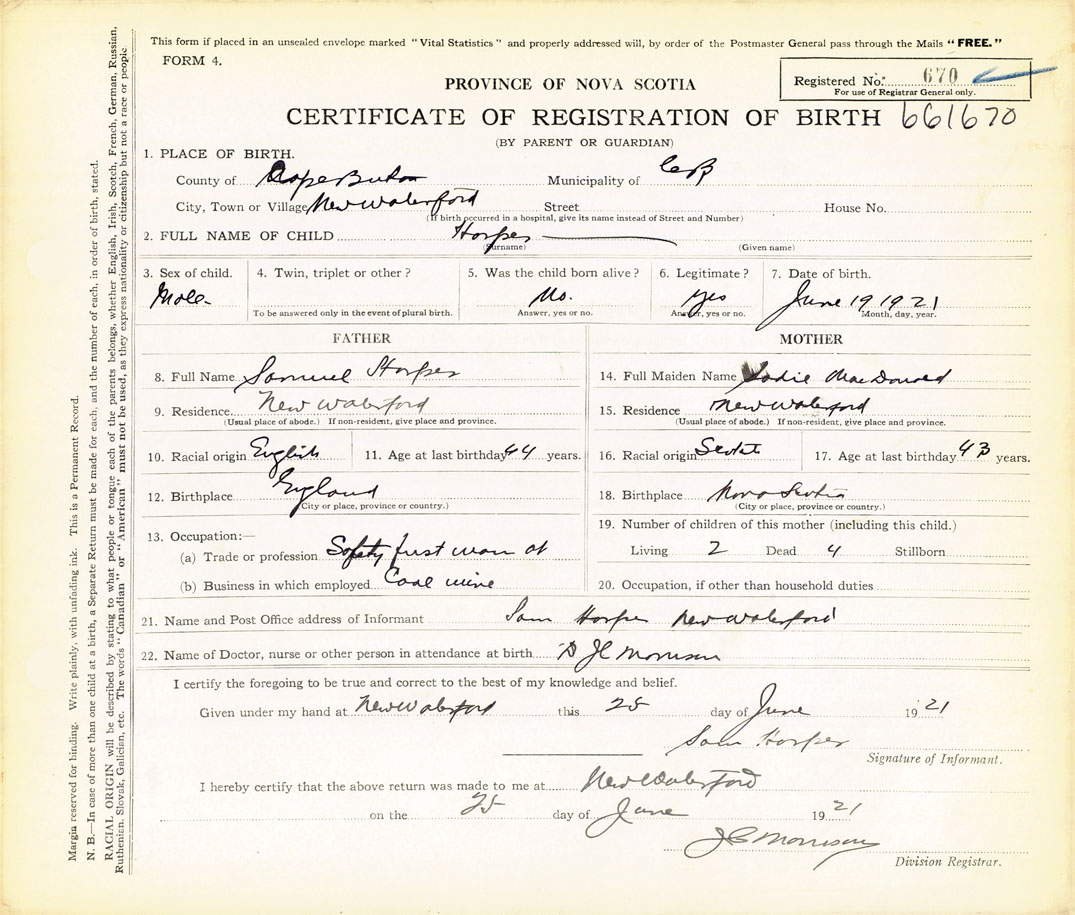 This form if placed in an unsealed envelope marked "Vital Statistics" and properly addressed will, by order of the Postmaster General pass through the Mails "FREE."
FORM 4.
Registered No. 670
For use of Registrar General only.
PROVINCE OF NOVA SCOTIA
CERTIFICATE OF REGISTRATION OF BIRTH 661670
(BY PARENT OR GUARDIAN)
1. PLACE OF BIRTH.
County of Cape Breton Municipality of CB
City, Town or Village New Waterford Street House No.
(If birth occurred in a hospital, give its name instead of Street and Number)
2. FULL NAME OF CHILD Harper
(Surname) (Given name)
3. Sex of child. 4. Twin, triplet or other? 5. Was the child born alive? 6. Legitimate? 7. Date of birth.
Male No. yes June 19 1921
To be answered only in the event of plural birth. Answer, yes or no. Answer, yes or no. Month, day, year.
FATHER MOTHER
8. Full Name Samuel Harper 14. Full Maiden Name Sadie MacDonald
9. Residence New Waterford 15. Residence New Waterford
(Usual place of abode.) If non-resident, give place and province. (Usual place of abode.) If non-resident, give place and province.
10. Racial origin English 11. Age at last birthday 44 years. 16. Racial origin 17. Age at last birthday 43 years.
12. Birthplace England 18. Birthplace Nova Scotia
(City or place, province or country.) (City or place, province or country.)
13. Occupation:— 19. Number of children of this mother (including this child.)
(a) Trade or profession Safety first man at Living 2 Dead 4 Stillborn
(b) Business in which employed Coal mine 20. Occupation, if other than household duties
21. Name and Post Office address of Informant Sam Harper New Waterford
22. Name of Doctor, nurse or other person in attendance at birth Morrison
I certify the foregoing to be true and correct to the best of my knowledge and belief.
Given under my hand at New Waterford this 25 day of June 1921
Sam Harper
Signature of Informant.
I hereby certify that the above return was made to me at New Waterford
on the 25 day of June 1921
Morrison
Division Registrar.
Margin reserved for binding. Write plainly, with unfading ink. This is a Permanent Record.
N. B.—In case of more than one child at a birth, a Separate Return must be made for each, and the number of each, in order of birth, stated.
RACIAL ORIGIN will be described by stating to what people or tongue each of the parents belongs, whether English, Irish, Scotch, French, German, Russian,
Ruthenian, Slovak, Galician, etc. The words "Canadian" or "American" must not be used, as they express nationality or citizenship but not a race or people